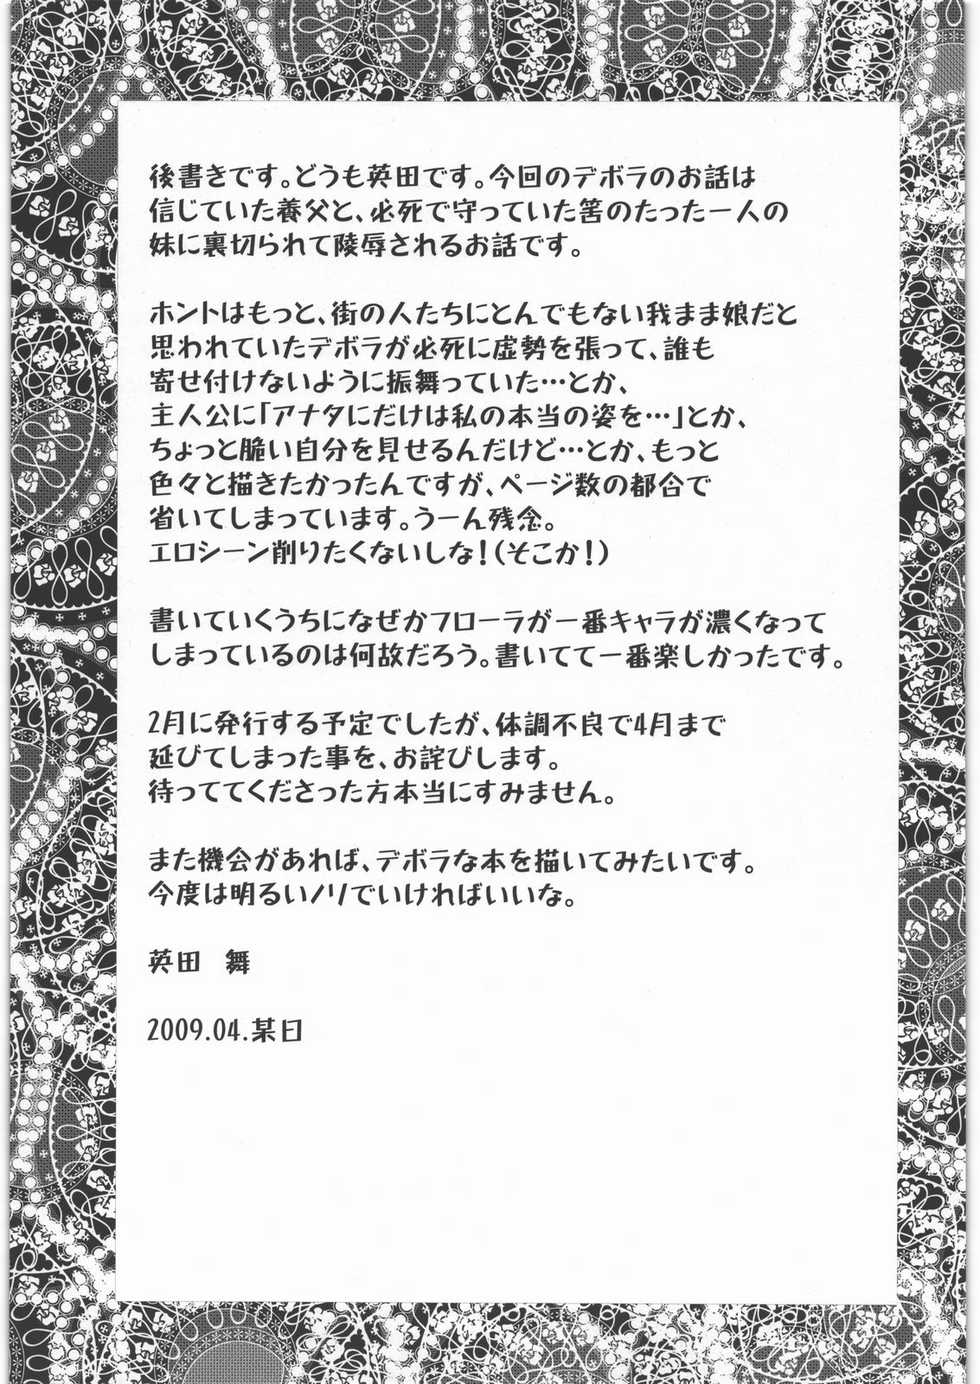 後書きです。どうも英田です。今回のデボラのお話は
信じていた養父と、必死で守っていた筈のたった一人の
妹に裏切られて陵辱されるお話です。
ホントはもっと、街の人たちにとんでもない我まま娘だと
思われていたデボラが必死に虚勢を張って、誰も
寄せ付けないように振舞っていた…とか、
主人公に「アナタにだけは私の本当の姿を…」とか、
ちょっと脆い自分を見せるんだけど…とか、もっと
色々と描きたかったんですが、ページ数の都合で
省いてしまっています。うーん残念。
エロシーン削りたくないしな！（そこか！）
書いていくうちになぜかフローラが一番キャラが濃くなって
しまっているのは何故だろう。書いてて一番楽しかったです。
2月に発行する予定でしたが、体調不良で4月まで
延びてしまった事を、お詫びします。
待っててくださった方本当にすみません。
また機会があれば、デボラな本を描いてみたいです。
今度は明るいノリでいければいいな。
英田　舞
2009.04.某日